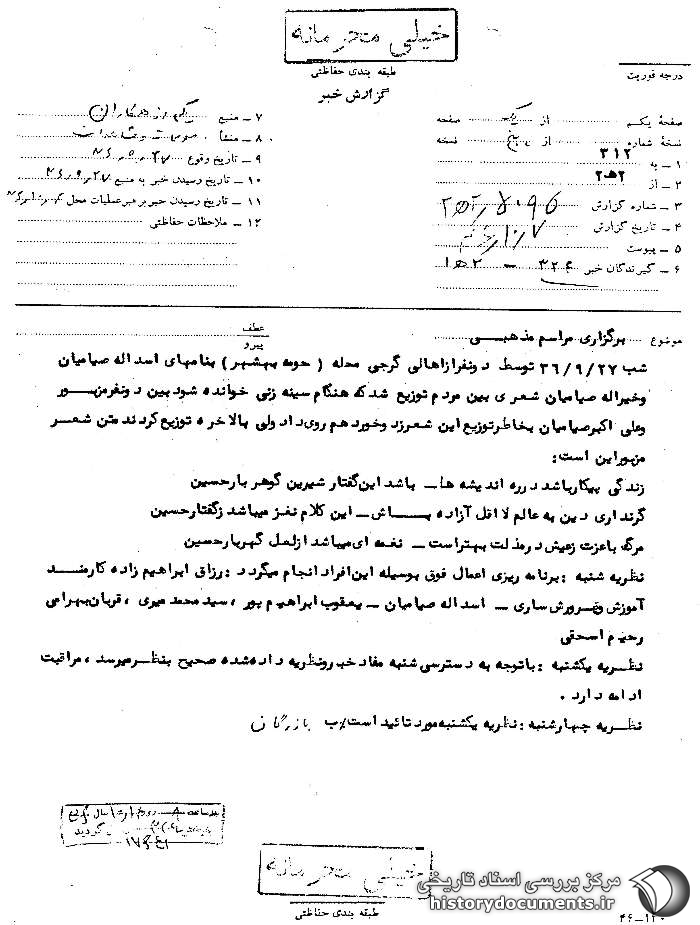 خیلی محرمانه
طبقه بندی حفاظتی
گزارش خبر
درجه فوریت
صفحهٔ یکم از یک صفحه
نسخهٔ شماره از نسخه
۱ – به ۳۱۲
۲ – از ۲ﻫ۲
۳ – شماره گزارش
۴ – تاریخ گزارش
۵ – پیوست
۶ – گیرندگان خبر ۳۲۶ – ۱ﻫ۳
۷ – منبع یکی از همکاران
۸ – منشأ
۹ – تاریخ وقوع
۱۰ – تاریخ رسیدن خبر به منبع
۱۱ – تاریخ رسیدن خبر برهبر عملیات محل
۱۲ – ملاحظات حفاظتی
موضوع برگزاری مراسم مذهبی
عطف
پیرو
شب ۳۶/۹/۲۷ توسط دونفرازاهالی گرجی محله ( حومه بهشهر ) بنامهای اسداله صیامیان
وخیراله صیامیان شعری بین مردم توزیع شدکه هنگام سینه زنی خوانده شودبین دونفرمزبور
وعلی اکبرصیامیان بخاطرتوزیع این شعرزدوخوردهم روی دادولی بالاخره توزیع کردندمتن شعر
مزبوراین است:
زندگی پیکارباشد درره اندیشه ها – باشد این گفتار شیرین گوهر بارحسین
گرنداری دین به عالم لااقل آزاده باش – این کلام نغز میباشد زگفتارحسین
مرگ باعزت زعیش درمذلت بهتراست – نغمه ای میباشد ازلعل گهربارحسین
نظریه شنبه : برنامه ریزی اعمال فوق بوسیله این افراد انجام میگردد : رزاق ابراهیم زاده کارمند
آموزش وپرورش ساری – اسداله صیامیان – یعقوب ابراهیم پور ، سید محمد میری ، قربان بهرامی
رحیم اسحقی
نظریه یکشنبه : باتوجه به دسترسی شنبه مفاد خبرونظریه داده شده صحیح بنظرمیرسد ، مراقبت
ادامه دارد .
نظریه چهارشنبه : نظریه یکشنبه مورد تائید است/ب بازرگان
خیلی محرمانه
طبقه بندی حفاظتی
مرکز بررسی اسناد تاریخی
historydocuments.ir
۴۶–۱۲۰